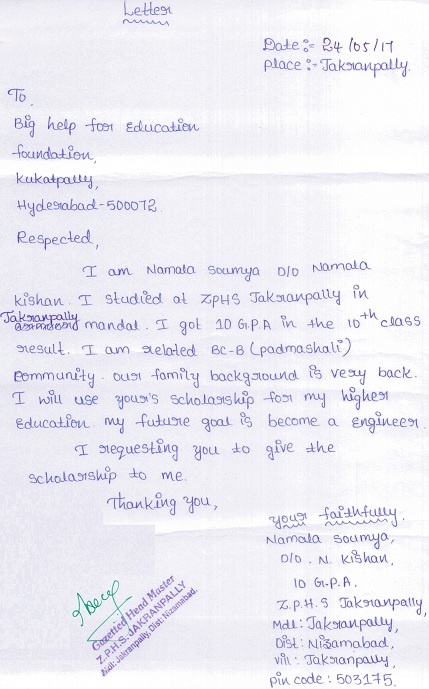 Letter
Date :- 24/05/17
place :- Jakranpally.
To,
Big help for Education
foundation,
kukatpally,
Hyderabad-500072.
Respected,
I am Namala Soumya D/O Namala
kishan. I studied at ZPHS Jakranpally in
Jakranpally
mandal. I got 10 G.P.A in the 10th class
result. I am related BC-B (padmashali)
community. our family background is very back.
I will use your's scholarship for my higher
Education. my future goal is become a engineer.
I requesting you to give the
scholarship to me.
Thanking you,
your faithfully.
Namala Soumya,
D/O. N. Kishan,
10 G.P.A.
Z.P.H.S Jakranpally,
Mdl: Jakranpally,
Dist: Nizamabad,
vill: Jakranpally,
pin code: 503175.
Gazetted Head Master
Z.P.H.S. JAKRANPALLY
Mdl: Jakranpally, Dist: Nizamabad.